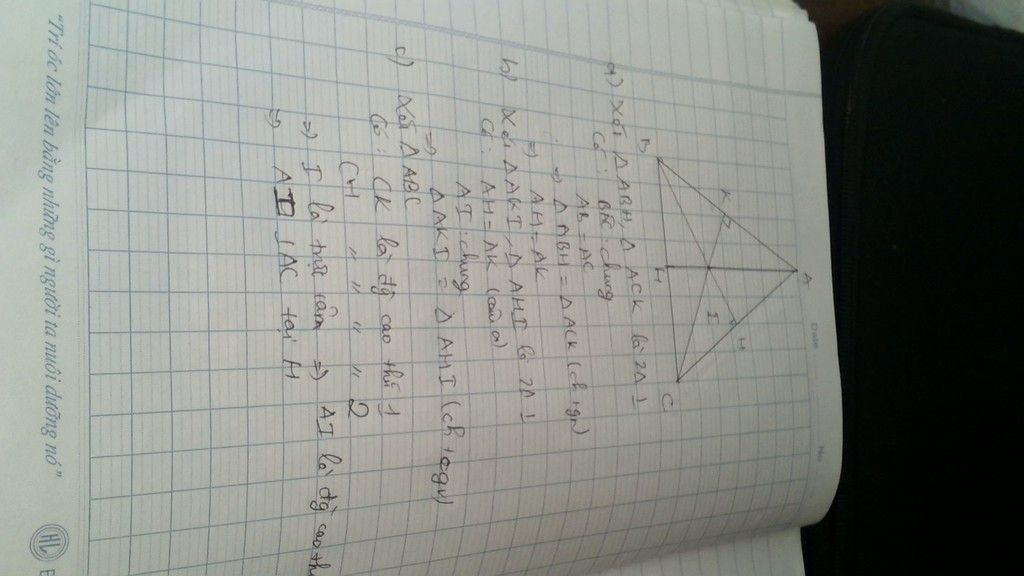 Date
No
A
K
H
I
B
H
C
a) Xét Δ ABH, Δ ACK là 2Δ ⊥
Có: BÂC chung
AB = AC
⇒ Δ ABH = Δ ACK (ch+gn)
⇒ AH = AK
b) Xét Δ AKI, Δ AHI là 2Δ ⊥
Có: AH = AK (câu a)
AI: chung
⇒ Δ AKI = Δ AHI (ch + cgv)
c) Xét Δ ABC
Có: CK là đg cao thứ 1
" " " 2
⇒ I là trực tâm ⇒ AI là đg cao th
⇒ AI ⊥ AC tại H
"Trí óc lớn lên bằng những gì người ta nuôi dưỡng nó"
HL